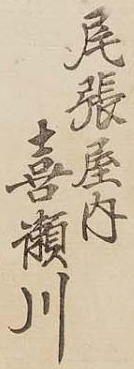 尾張屋内
喜瀬川